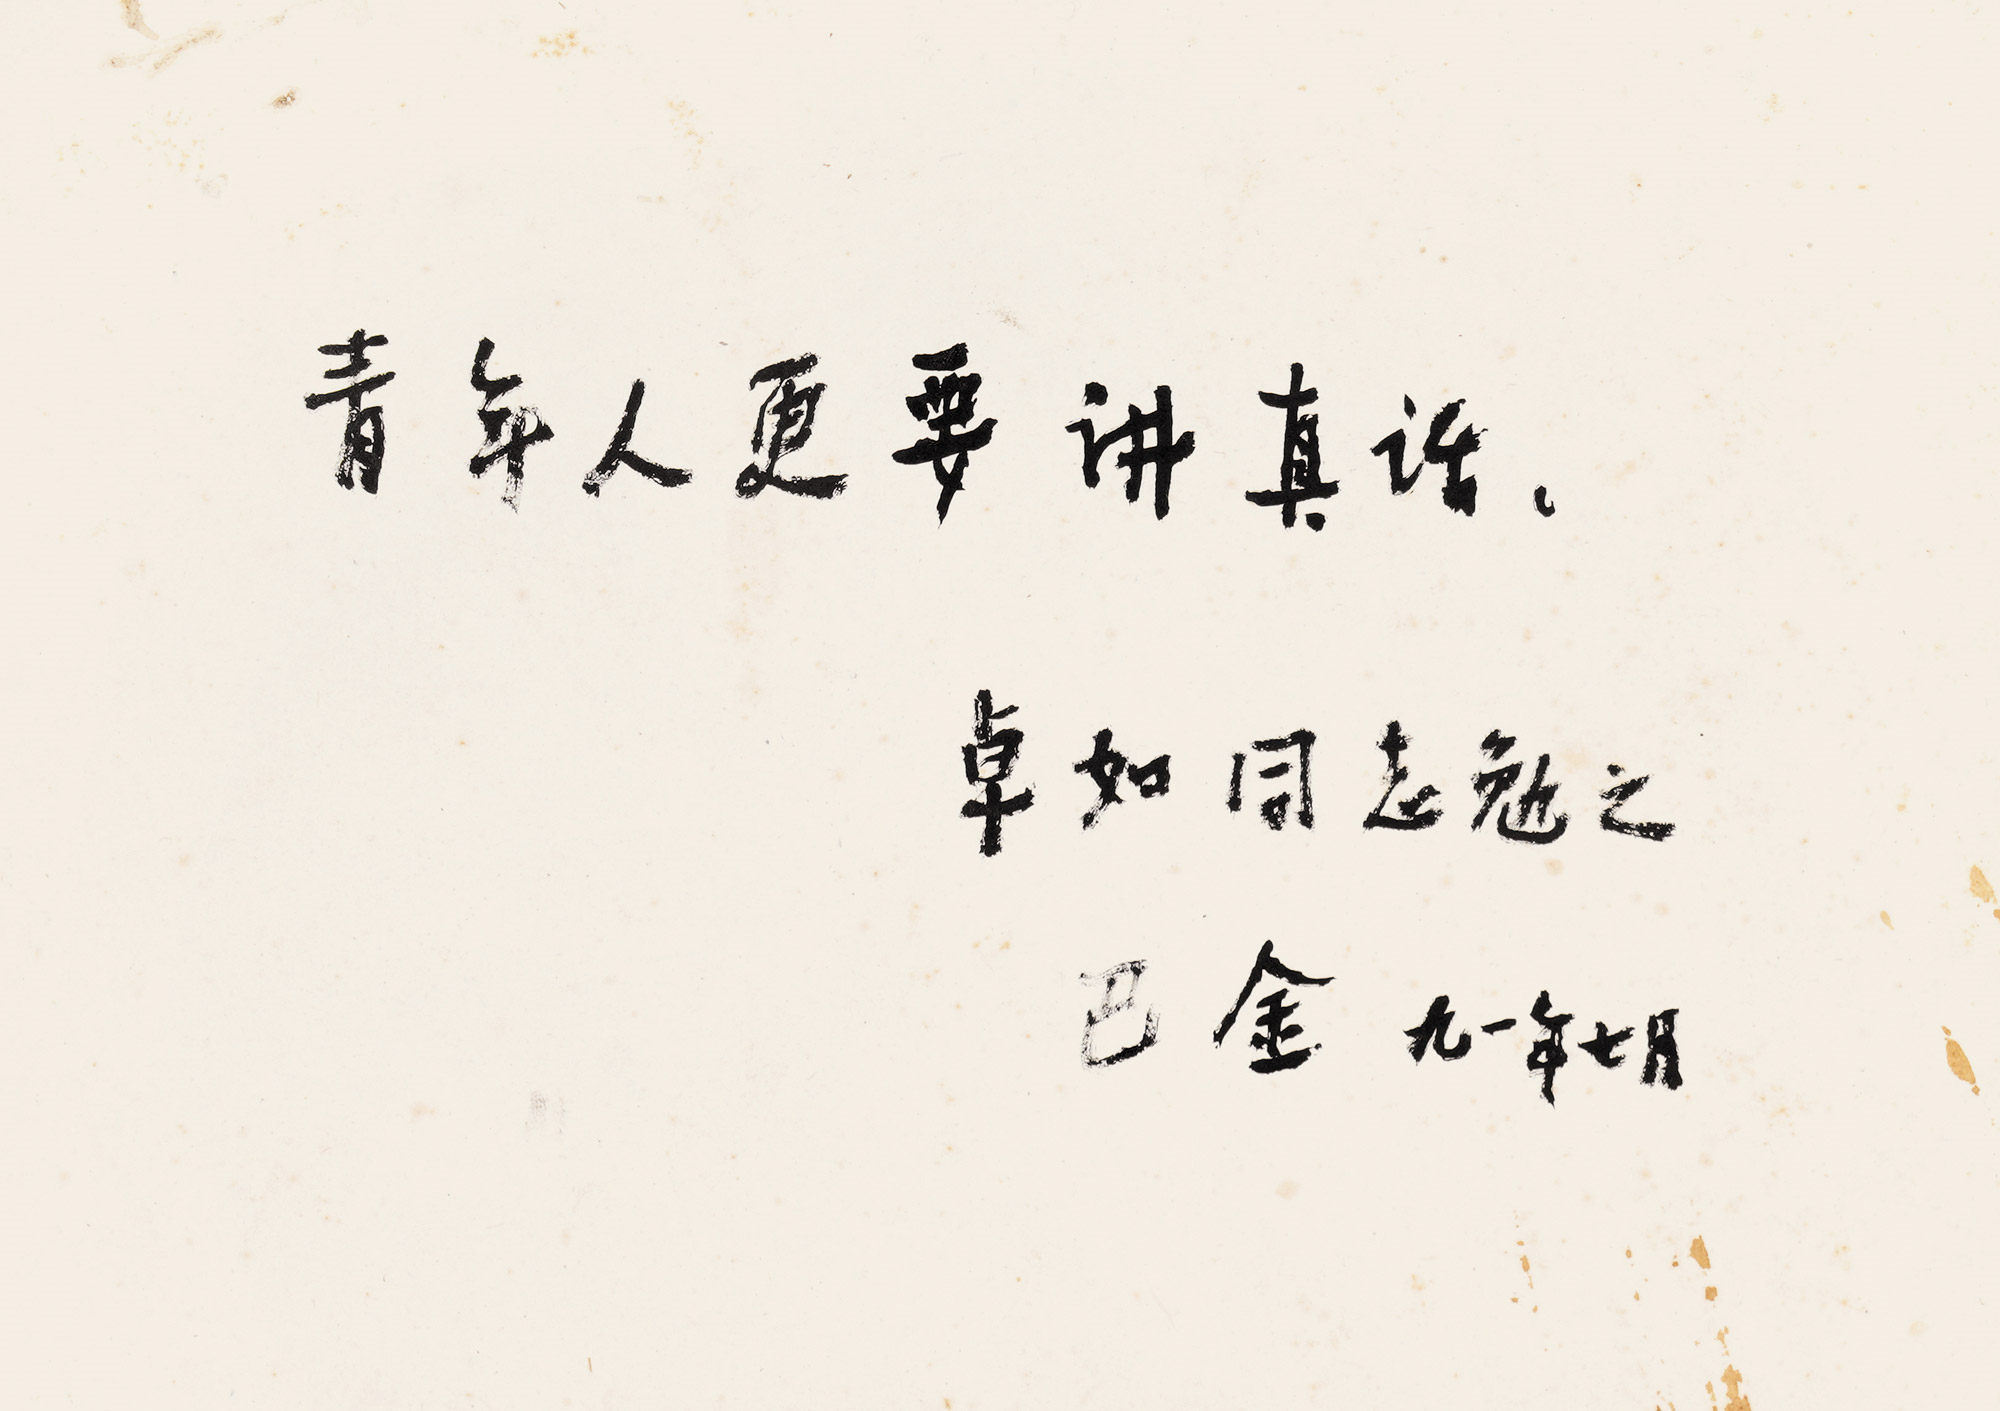 青年人更要讲真话。
卓如同志勉之
巴金 九一年七月